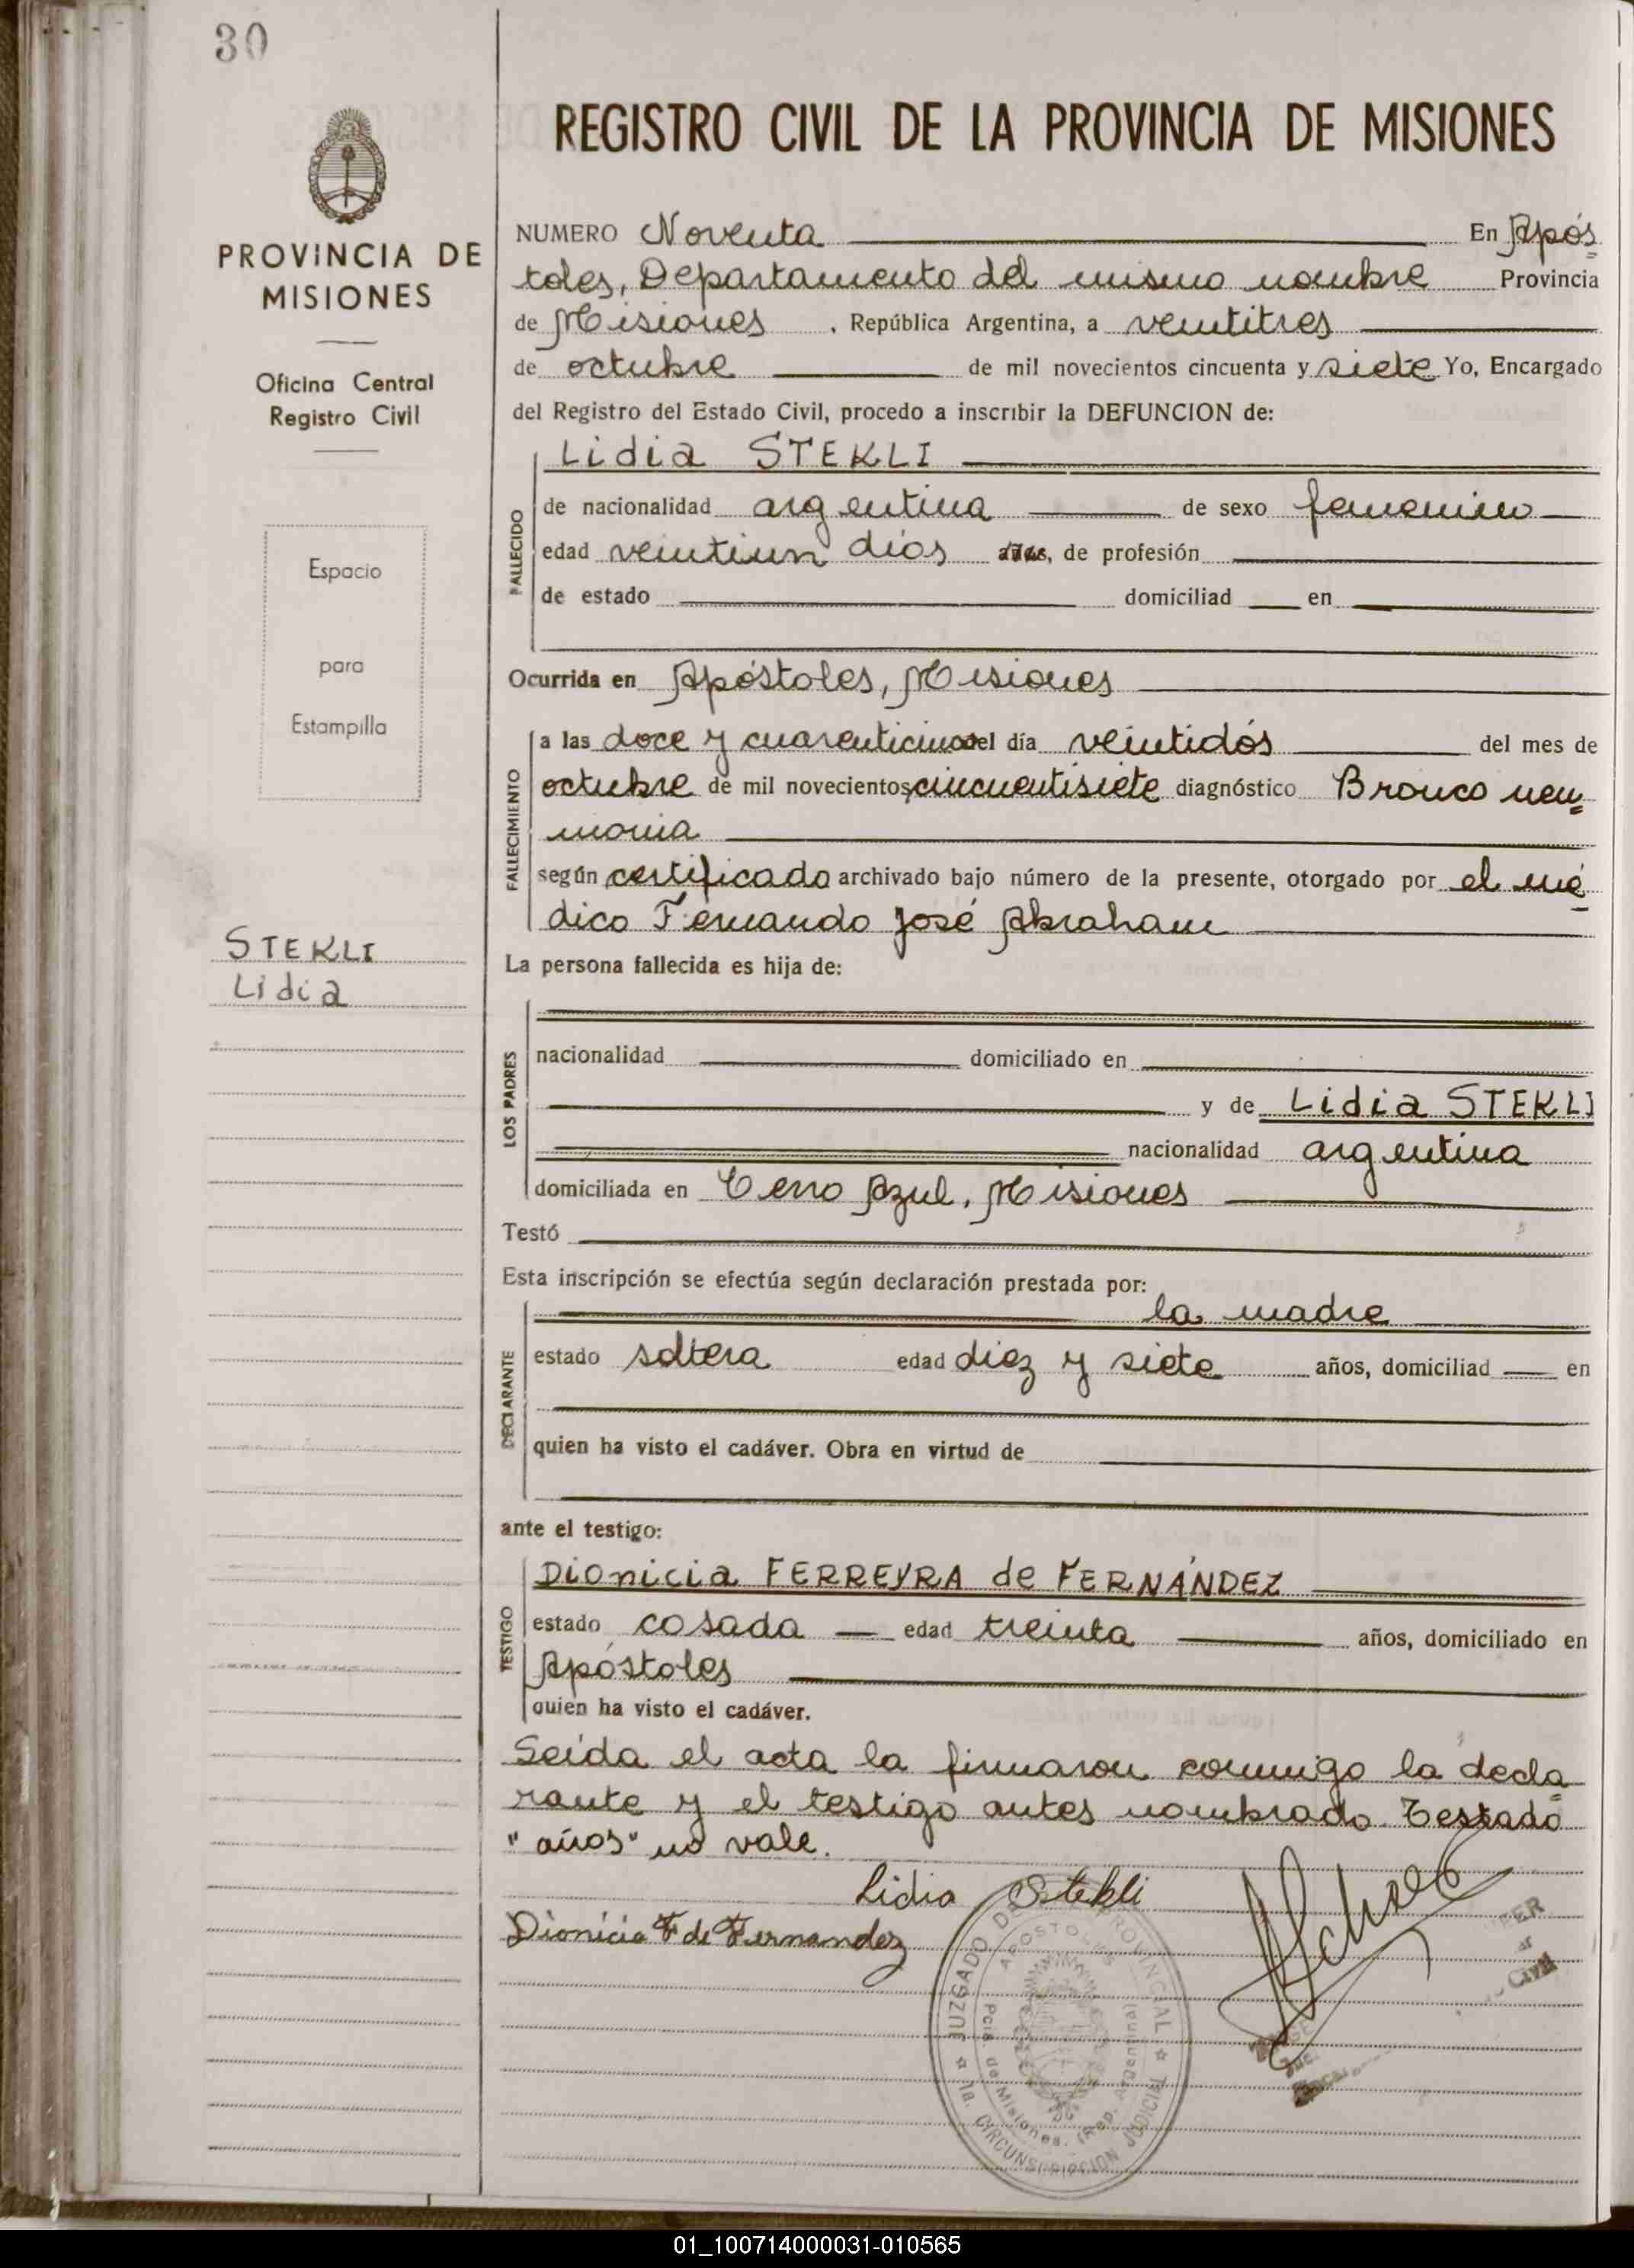 30
REGISTRO CIVIL DE LA PROVINCIA DE MISIONES
PROVINCIA DE
MISIONES
Oficina Central
Registro Civil
Espacio
para
Estampilla
STEKLI
Lidia
NUMERO Noventa En Após
toles, Departamento del mismo nombre Provincia
de Misiones , República Argentina, a veintitres
de octubre de mil novecientos cincuenta y siete Yo, Encargado
del Registro del Estado Civil, procedo a inscribir la DEFUNCION de:
Lidia STEKLI
FALLECIDO
de nacionalidad argentina de sexo femenino
edad veintiun días años, de profesión
de estado domiciliad en
Ocurrida en Apóstoles, Misiones
FALLECIMIENTO
a las doce y cuarenticinco del día veintidós del mes de
octubre de mil novecientos cincuentisiete diagnóstico Bronco neu=
monia
según certificado archivado bajo número de la presente, otorgado por el mé
dico Fernando José Abraham
La persona fallecida es hija de:
LOS PADRES
nacionalidad domiciliado en
y de Lidia STEKLI
nacionalidad argentina
domiciliada en Cerro Azul, Misiones
Testó
Esta inscripción se efectúa según declaración prestada por:
DECLARANTE
la madre
estado soltera edad diez y siete años, domiciliad en
quien ha visto el cadáver. Obra en virtud de
ante el testigo:
TESTIGO
Dionicia FERREYRA de FERNÁNDEZ
estado casada edad treinta años, domiciliado en
Apóstoles
quien ha visto el cadáver.
Leída el acta la firmaron conmigo la decla=
rante y el testigo antes nombrado. Testado
"años" no vale.
Lidia Stekli
Dionicia F de Fernandez
JUZGADO DE PAZ PROVINCIAL
APOSTOLES
Pcia. de Misiones. (Rep. Argentina)
1a. CIRCUNSCRIPCION JUDICIAL
Civil
01_100714000031-010565